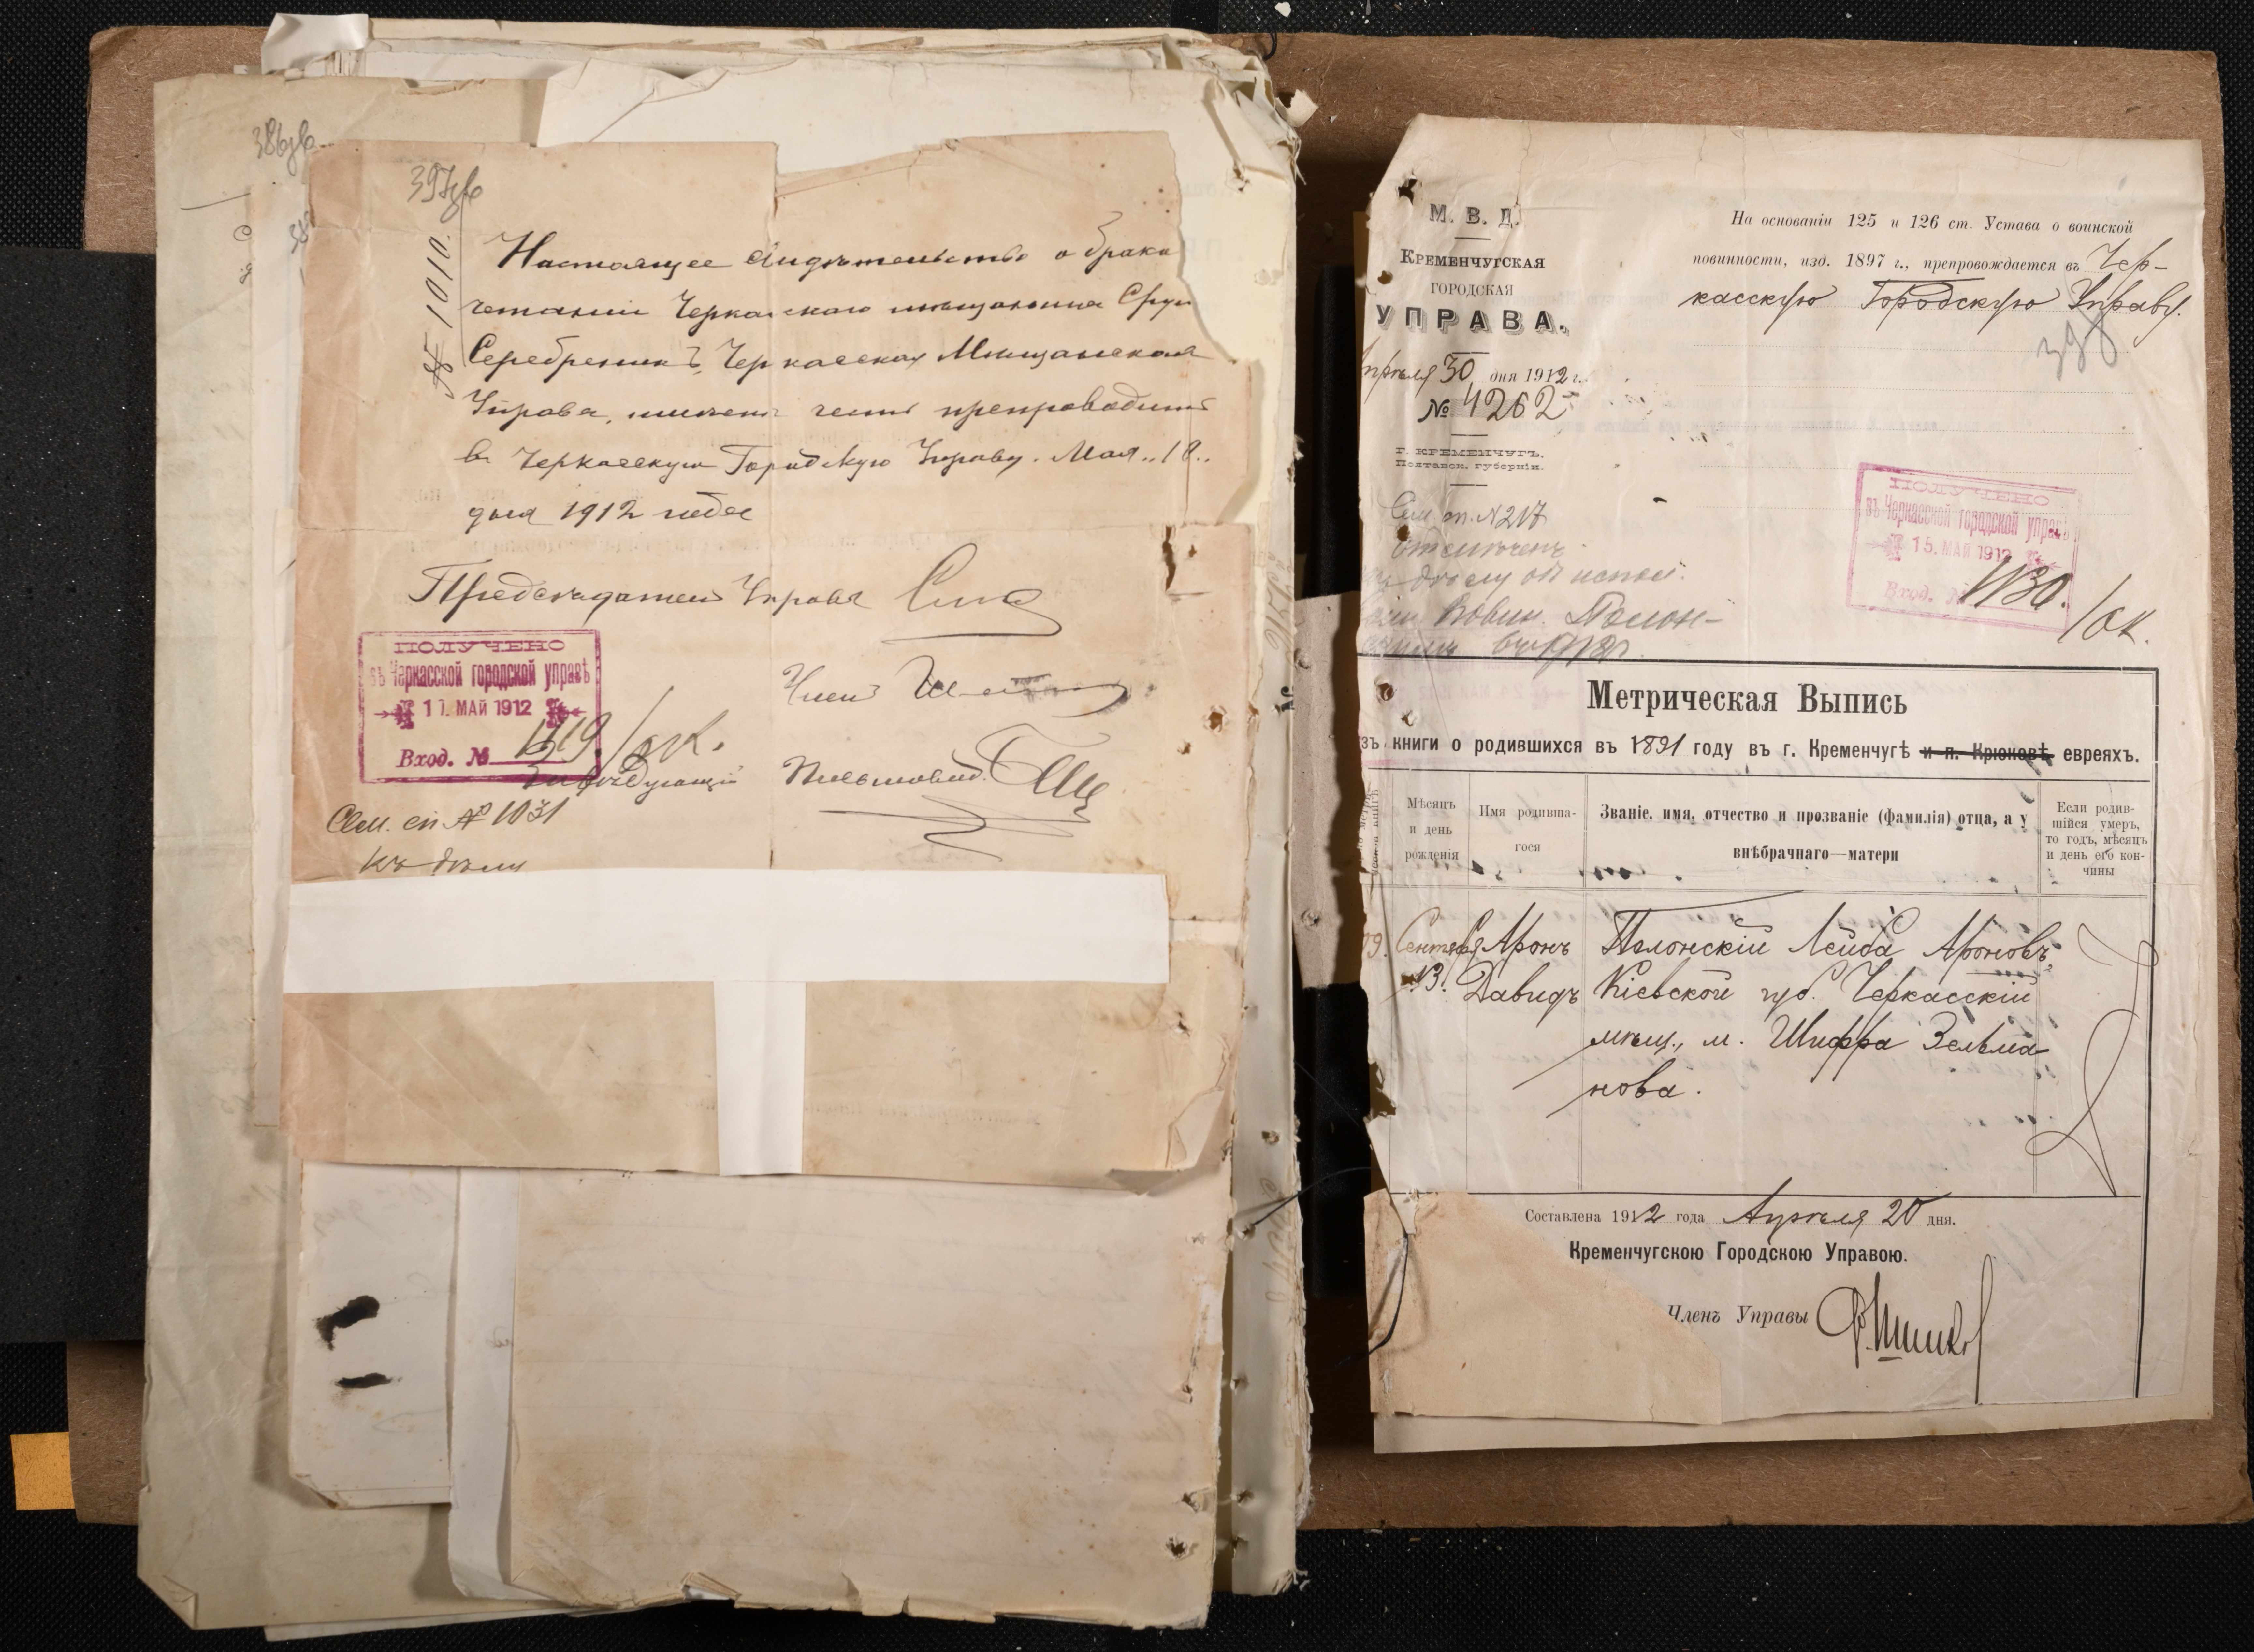 № 1010.
Настоящее Свидѣтельство о брако
четаніи Черкасскаго мѣщанина Сруля
Серебреникъ, Черкасская Мѣщанская
Управа, имѣетъ честь препроводить
въ Черкасскую Городскую Управу. Мая „18„
дня 1912 года
Предсѣдатель Управы
Членъ
ПОЛУЧЕНО
въ Черкасской городской управѣ
МАЙ 1912
Вход. № 1119/ок.
Завѣдующій Письмовод.
Сем. сп № 1031
къ дѣлу
М. В. Д.
КРЕМЕНЧУГСКАЯ
ГОРОДСКАЯ
УПРАВА.
Апрѣля 30 дня 1912 г.
№ 4262
Г. КРЕМЕНЧУГЪ.
Полтавск. губерніи.
Сем. сп. № 217
Отмѣченъ
къ дѣлу об испол.
воин. повин. Полон-
скимъ въ 1912 г.
На основаніи 125 и 126 ст. Устава о воинской
повинности, изд. 1897 г., препровождается въ Чер-
касскую Городскую Управу.
ПОЛУЧЕНО
въ Черкасской городской управѣ
15. МАЙ 1912
Вход. № 1130./ок.
Метрическая Выпись
зъ книги о родившихся въ 1891 году въ г. Кременчугѣ и п. Крюковѣ евреяхъ.
Мѣсяцъ
и день
рожденія
Имя родивша-
гося
Званіе, имя, отчество и прозваніе (фамилія) отца, а у
внѣбрачнаго—матери
Если родив-
шійся умеръ,
то годъ, мѣсяцъ
и день его кон-
чины
Сентября 13.
Аронъ Давидъ
Полонскій Лейба Ароновъ,
Кіевской губ. Черкасскій
мѣщ., м. Шифра Зельма-
нова.
Составлена 1912 года Апрѣля 20 дня.
Кременчугскою Городскою Управою.
Членъ Управы